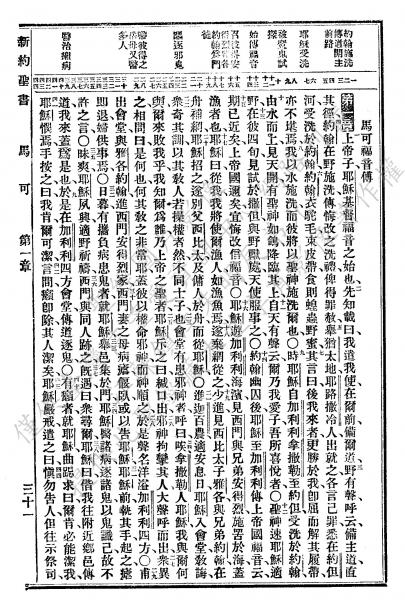 馬可福音傳
約翰施洗
傳道開主
耶穌受洗
被魔鬼試
始傳福音
驅逐邪鬼
醫彼得之
岳母又醫
多人
醫治癩病
第一章上帝子耶穌基督福音之始也先知載曰我遣我使在爾前備爾道野有聲呼云備主道直
其徑約翰在野施洗傳悔改之洗禮俾得罪赦舉猶太地耶路撒冷人出就之各言己罪悉在約但
河受洗於約翰約翰衣駝毛束皮帶食則蝗蟲野蜜其言曰後我來者更勝於我卽屈而解其履帶
亦不堪焉我以水施洗而彼將以聖神施洗爾也○時耶穌自加利利拿撒勒至約但受洗於約翰
由水而上見天開有聖神如鴿降臨其上自天有聲云爾乃我愛子吾所喜悅者○聖神速耶穌適
野在彼四旬見試於撒但與野獸處天使服事之○約翰幽囚後耶穌至加利利傳上帝國福音云
期已近矣上帝國邇矣宜悔改信福音○耶穌遊加利利海濱見西門與兄弟安得烈施罟於海蓋
漁者也耶穌曰從我我將使爾漁人如漁魚焉遂棄網從之少進見西比太子雅各與兄弟約翰在
舟補網耶穌招之遂別父西比太及傭人於舟而從耶穌○進迦百農適安息日耶穌入會堂敎誨
衆奇其訓以其敎人若操權者然不同士子也會堂有患邪神者呼曰唉拿撒勒耶穌我與爾何
與爾來敗我乎我知爾爲誰乃上帝之聖者耶穌斥之曰緘口出邪神拘攣其人大聲呼而出衆異
之相問曰是何也何其敎之非常耶蓋彼以權命邪神而神順之於是聲名洋溢加利利四方○甫
出會堂與雅各約翰進西門安得烈家西門妻之母病瘧偃臥或以告耶穌耶穌前執其手起之瘧
卽退婦供事焉○日暮有攜負病患鬼者就耶穌舉邑集於門耶穌醫諸病逐諸鬼以鬼識己故不
許之言○昧爽耶穌夙興適野祈禱西門與同人跡之旣遇曰衆尋爾耶穌曰偕我往附近鄕邑傳
道我來蓋爲是也於是在加利利四方會堂傳道逐鬼○有癩者就耶穌曲跽求曰爾肯必能潔我
耶穌憫焉手按之曰我肯爾可潔言間癩卽除其人潔矣耶穌嚴戒遣之曰愼勿告人但往示祭司
新約聖書 馬可 第一章 三十一